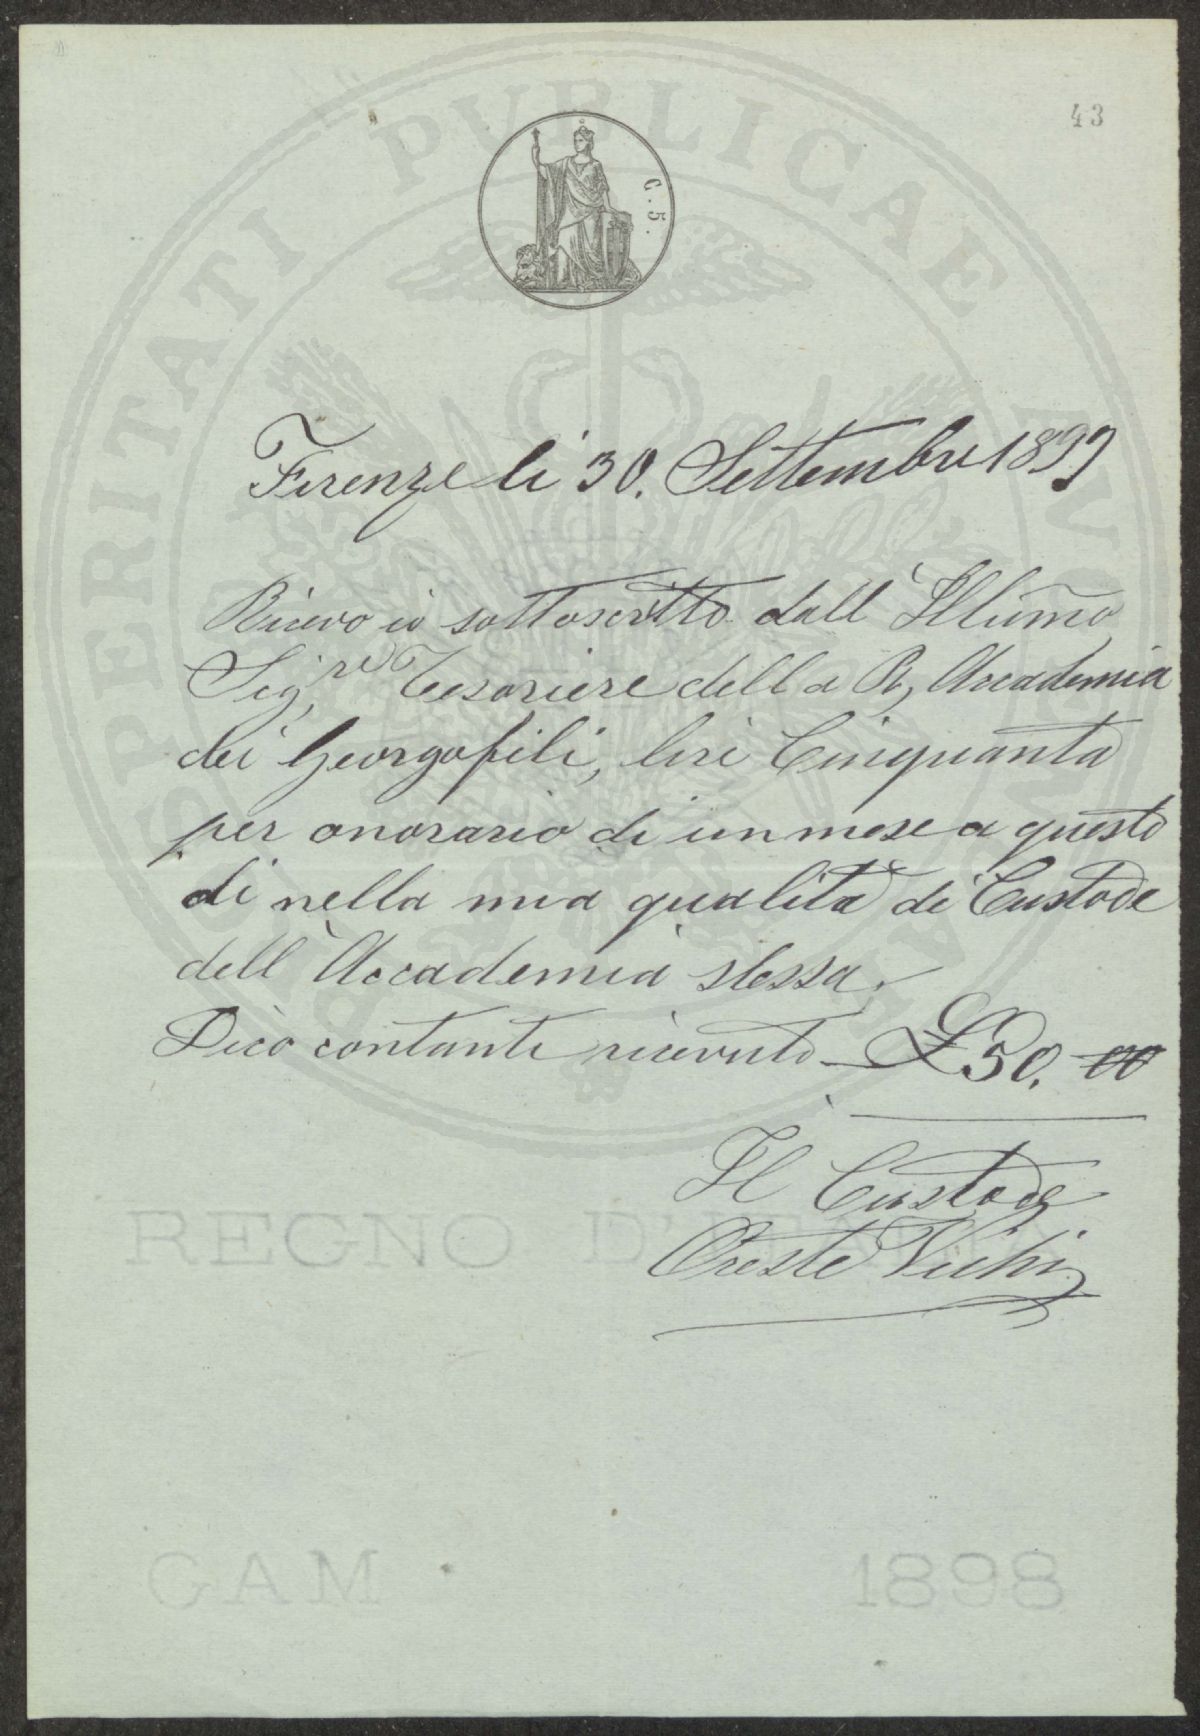 43
C. 5.
PROSPERITATI PUBLICAE
Firenze li 30. Settembre 1899
Ricevo io sottoscritto dall' Illumo
Sigre Tesoriere della R. Accademia
dei Georgofili, lire Cinquanta
per onorario di un mese a questo
dì nella mia qualità di Custode
dell' Accademia stessa.
Dico contanti ricevuto £ 50. 00
Il Custode
Oreste Vichi
REGNO D'ITALIA
GAM 1898